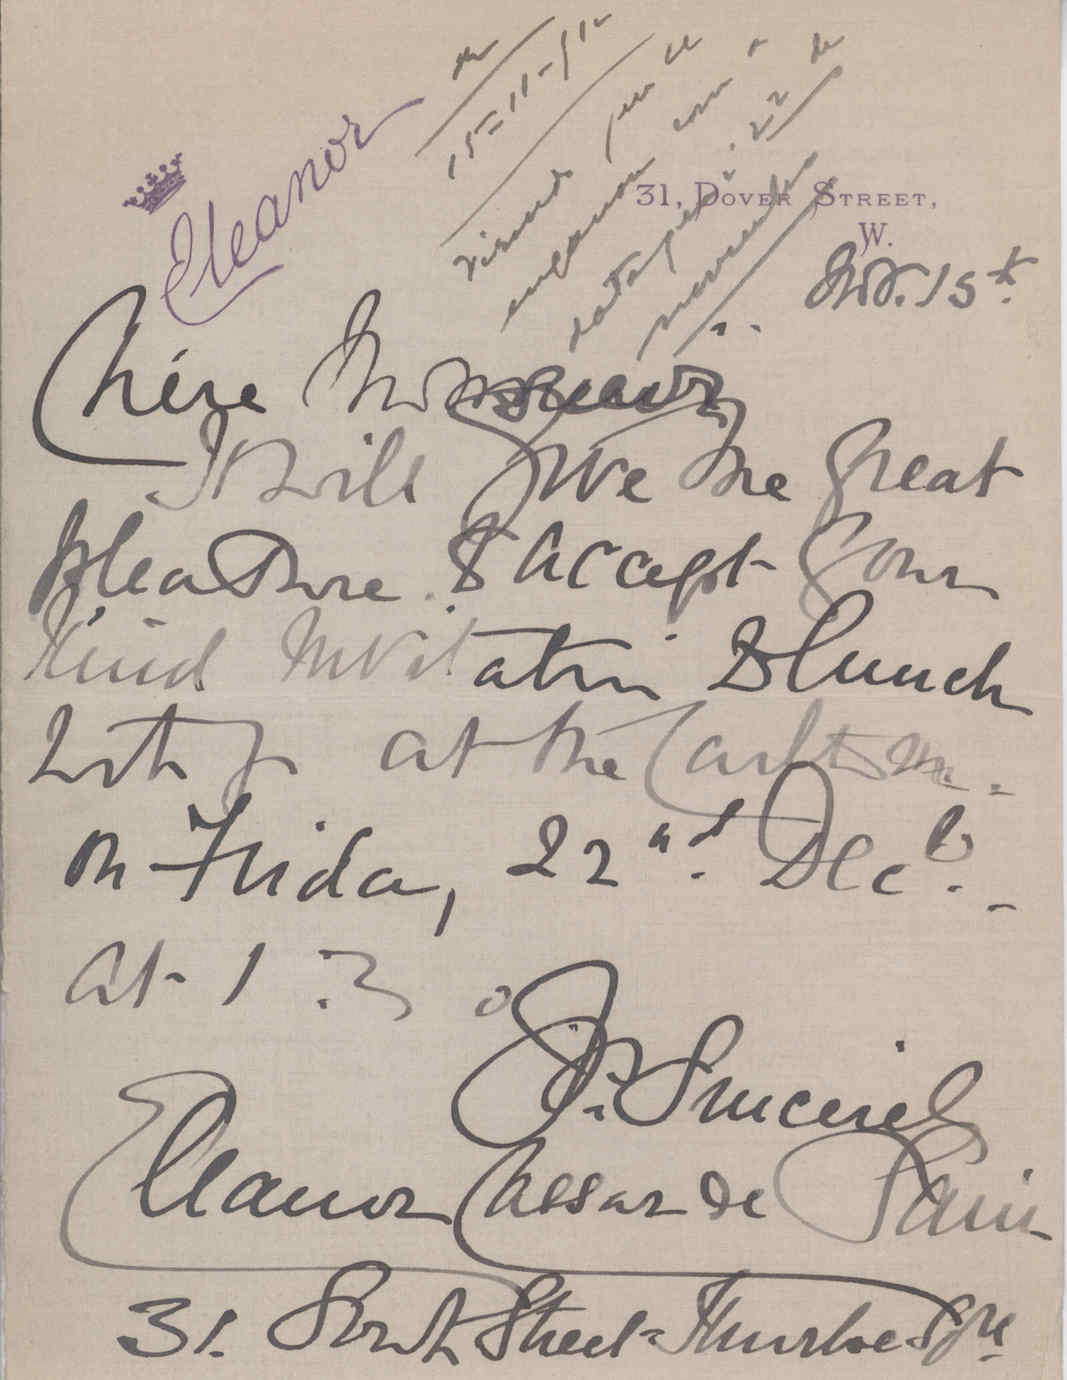 Eleanor
15-11-/12
31, DOVER STREET,
W.
Nov. 15th.
Chère Monsieur
It will give me great
pleasure to accept your
kind invitation to lunch
with you at the Carlton
on Friday, 22nd. Decb.
at 1.30
Yrs. Sincerely
Eleanor Cassar de Sain
31. South Street - Thurloe Sqre.